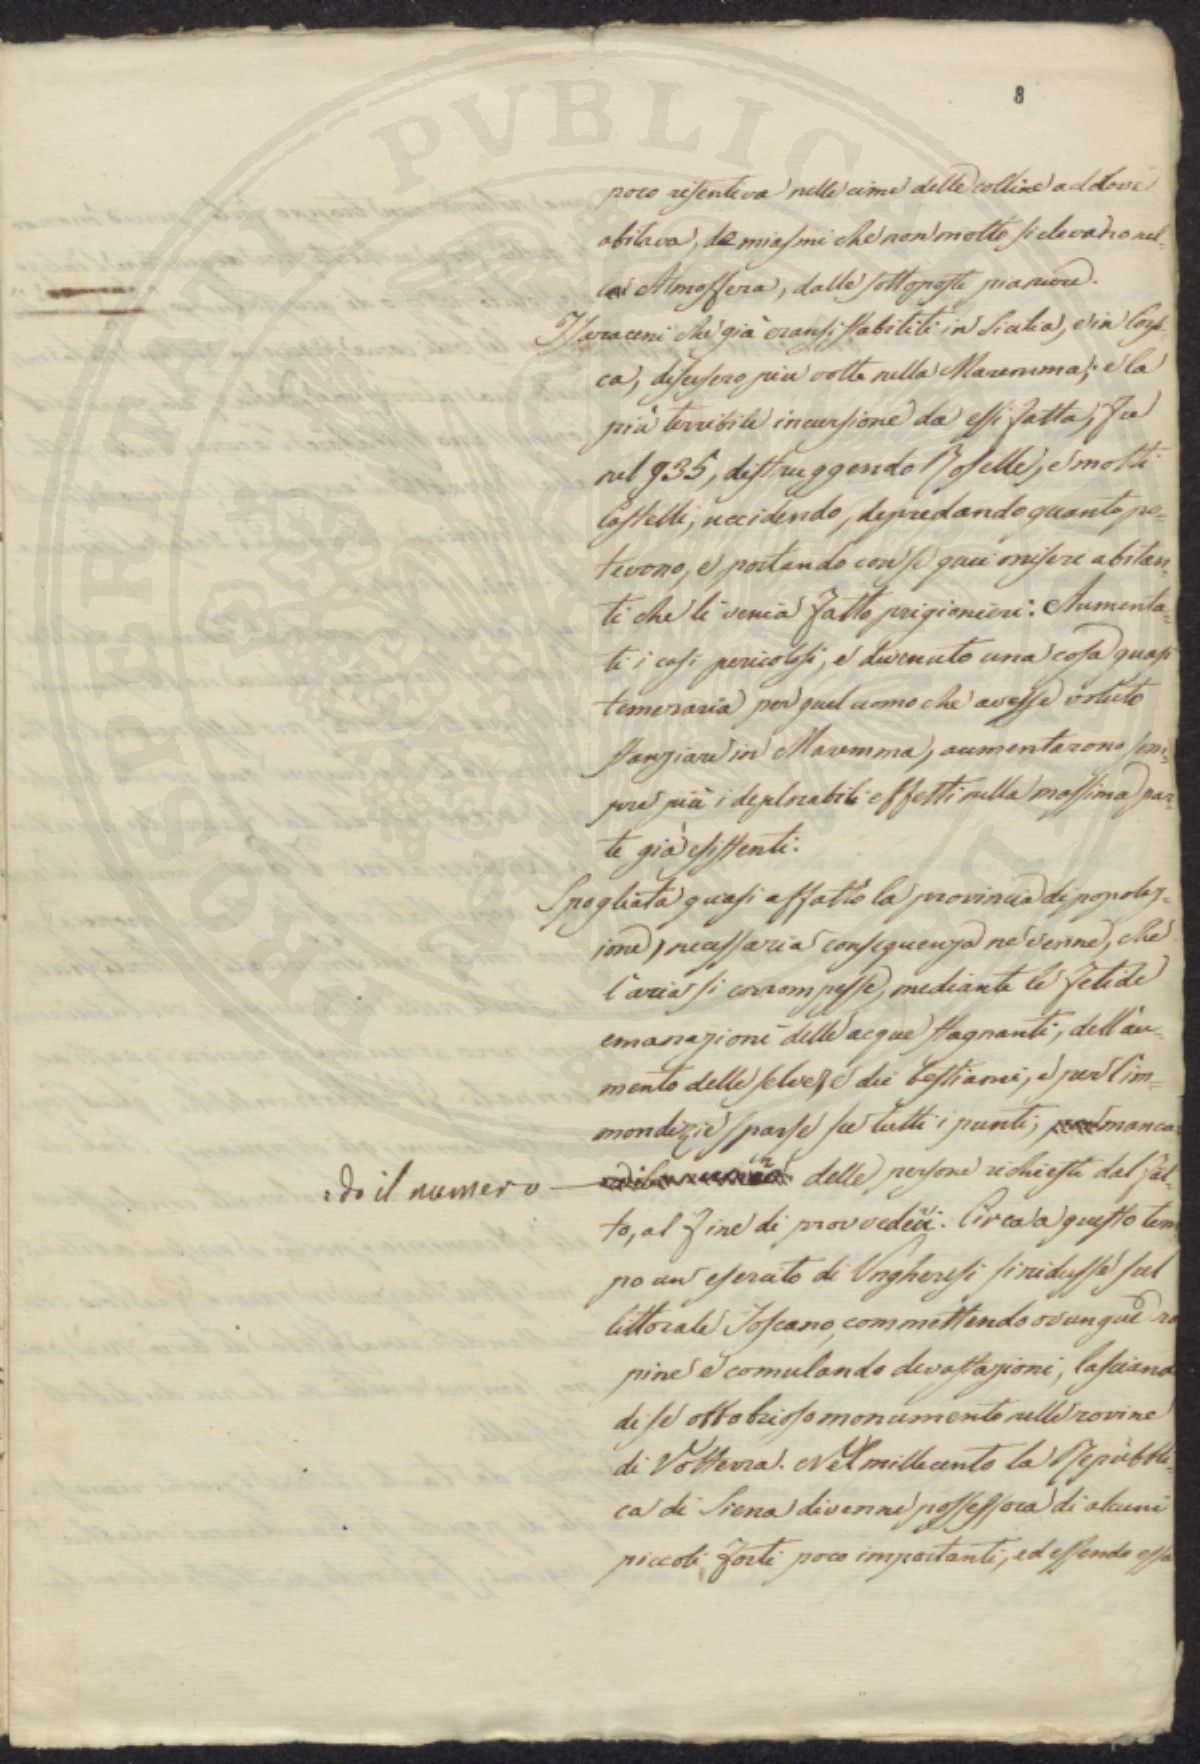 8
poco risentiva nelle cime delle colline addove
abitava, de miasmi che non molto si elevano nel-
la Atmosfera, dalle sottoposte pianure.
I Saraceni che già eransi stabiliti in Sicilia, e in Corsi-
ca, discesero più volte nella Maremma; e la
più terribile incursione da essi fatta, fu
nel 935, distruggendo Roselle, e molti
Castelli, uccidendo, depredando quanto po-
tevono, e portando con se quei miseri abitan-
ti che li venia fatto prigionieri. Aumenta-
ti i casi pericolosi, e divenuto una cosa quasi
temeraria per quel uomo che avesse voluto
stanziare in Maremma, aumentarono sem-
pre più i deplorabili effetti nella massima par-
te già esistenti.
Spogliata quasi affatto la provincia di popolaz-
ione, necessaria conseguenza ne venne, che
l'aria si corrompesse, mediante le fetide
emanazioni delle acque stagnanti, dell'au-
mento delle selve, e dei bestiami, e per l'im-
mondizie sparse su tutti i punti; mancan
do il numero
delle persone richieste dal fat-
to, al fine di provvedervi. Circa a questo tem
po un esercito di Ungheresi si ridusse sul
littorale Toscano, commettendo ovunque ra
pine e comulando devastazioni, lasciando
di se obbrobrioso monumento nelle rovine
di Volterra. Nel millecento la Repubbli-
ca di Siena divenne possessora di alcuni
piccoli forti poco importanti, ed essendo essa
PUBLIC